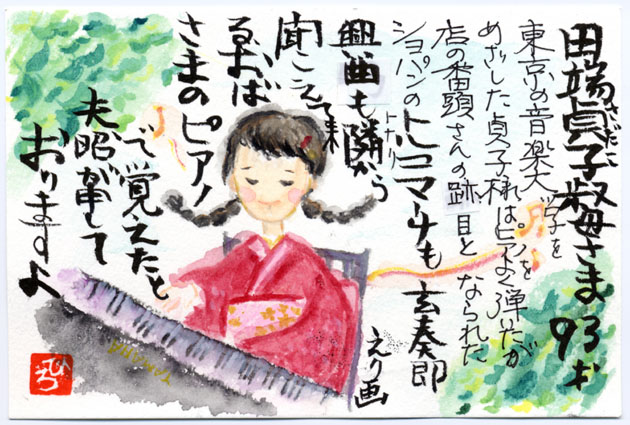 田端貞子叔母さま 93才
さだこ
東京の音楽大学を
めざした貞子様はピアノをよく弾いたが
店の番頭さんの跡目となられた
ショパンのトルコマーチも玄奏即
興曲も隣から
トナリ
聞こえて来
るおば
さまのピアノ
で覚えたと
夫昭が申して
おりますよ
えり画
YAMAHA